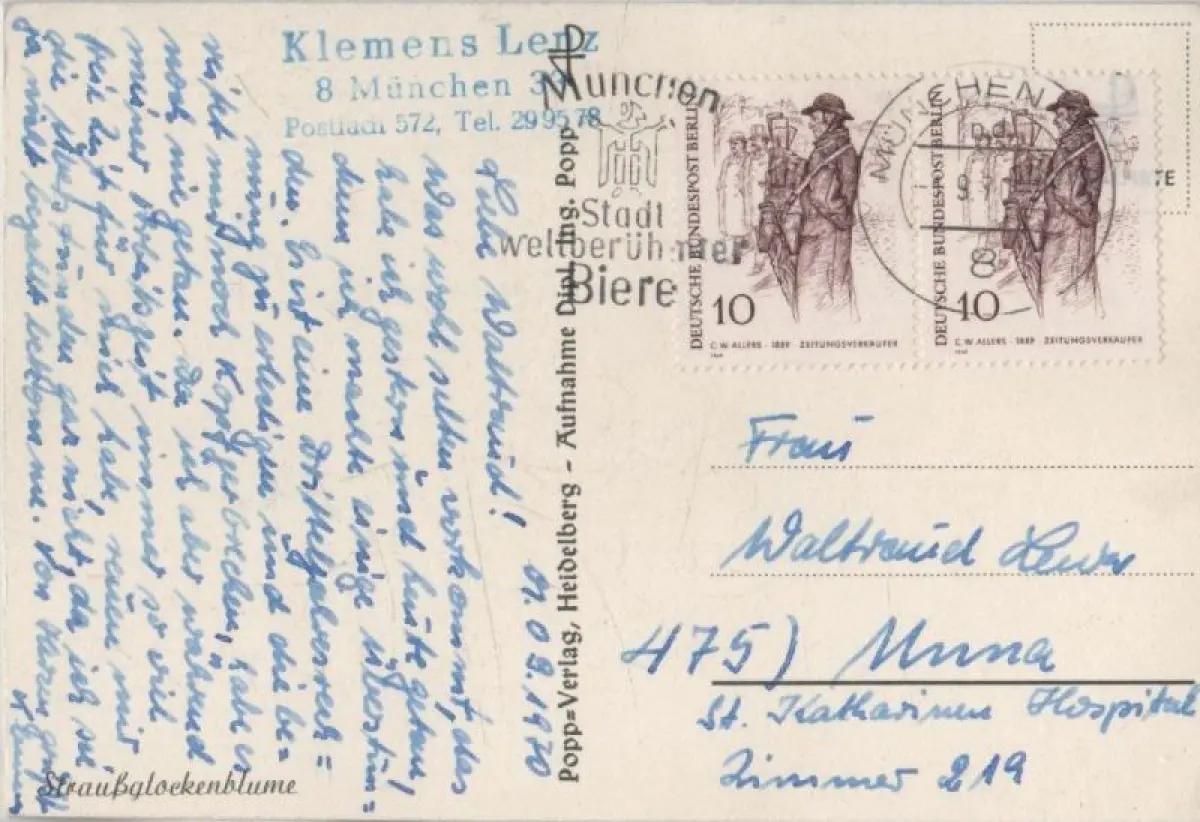 Klemens Lenz
8 München 33
Postfach 572, Tel. 29 95 78
01.09.1970
Liebe Waltraud!
Was wohl selten vorkommt, das
habe ich gestern und heute getan!
denn ich machte einige Überstun=
den. eine
nung zu erledigen und die be=
noch Kopfzerbrechen, habe es
noch nie getan. Da ich aber während
meiner Arbeitszeit immer so viel
freie Zeit für mich habe, reuen mir
die Überstunden gar nicht, da ich sie
ja nicht bezahlt bekomme. Von Herzen grüßt
Straußglockenblume
Popp=Verlag, Heidelberg - Aufnahme Dipl. Ing. Popp
München
Stadt
weltberühmter
Biere
MÜNCHEN
DEUTSCHE BUNDESPOST BERLIN
10
C. W. ALLERS · 1889 ZEITUNGSVERKÄUFER
1969
DEUTSCHE BUNDESPOST BERLIN
10
C. W. ALLERS · 1889 ZEITUNGSVERKÄUFER
1969
Frau
Waltraud Lenz
475) Unna
St. Katharinen Hospital
Zimmer 219